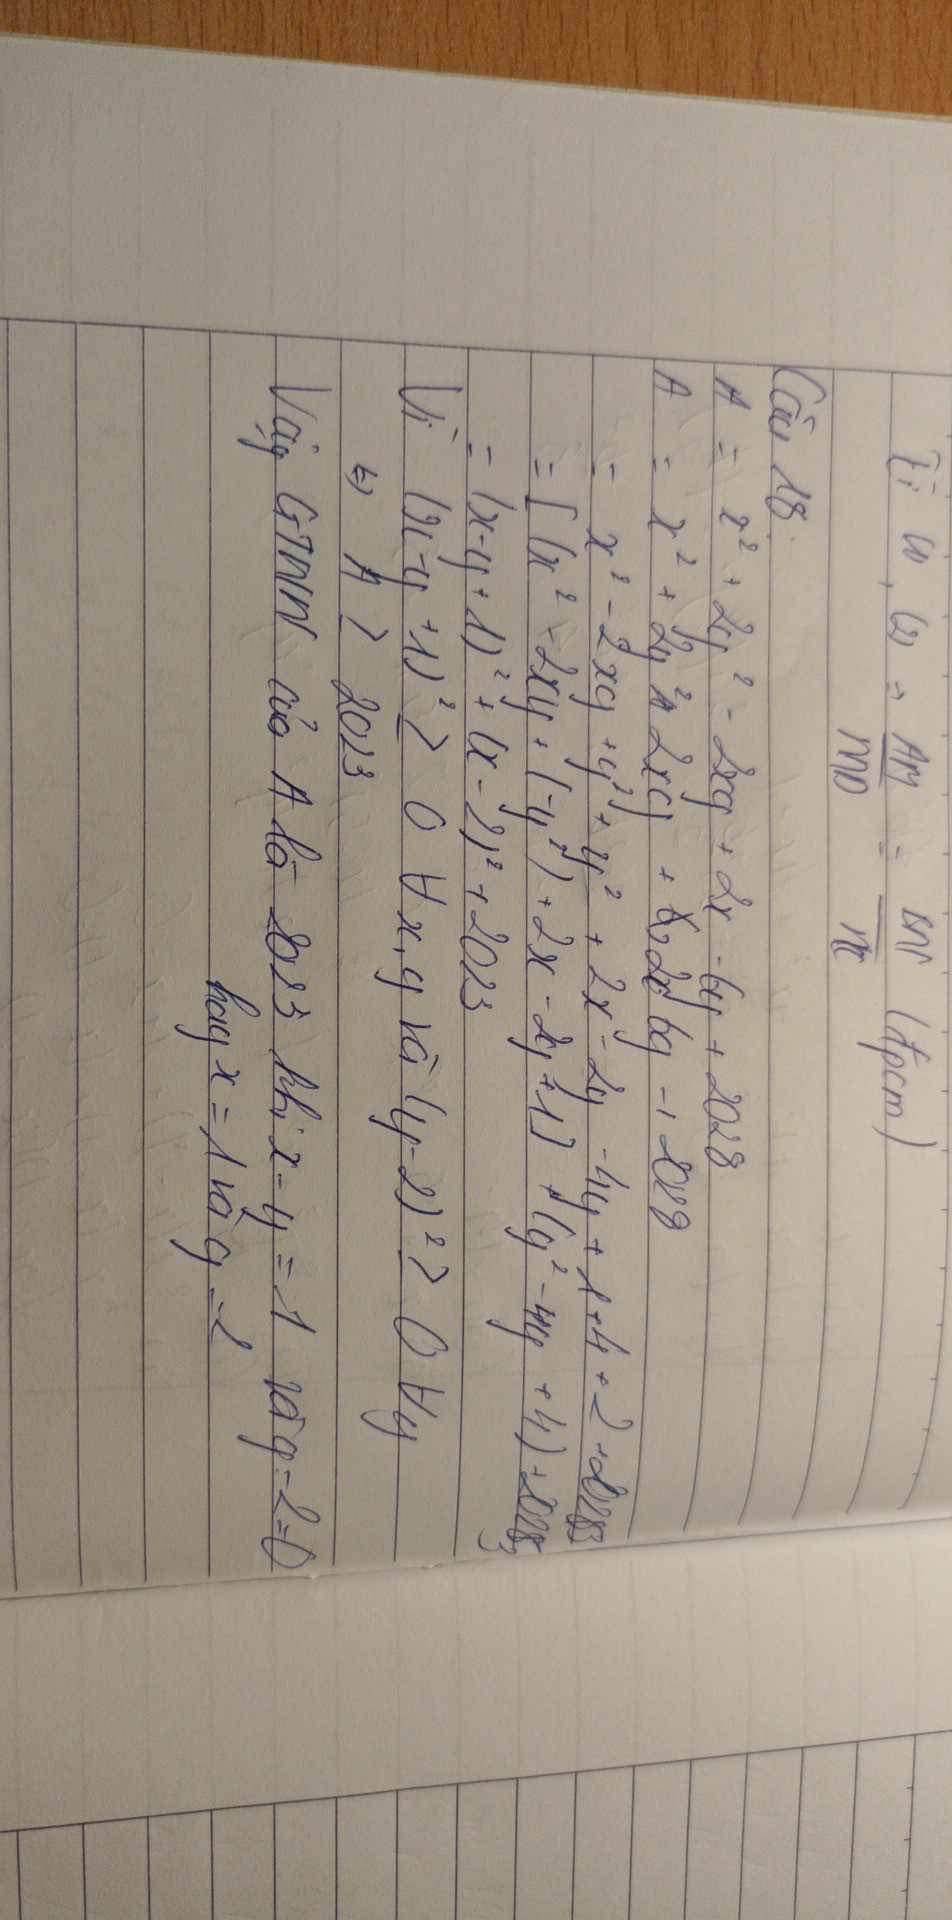 Từ (1), (2) ⇒ AM/MD = BN/NC (đpcm)
Câu 18:
A = x² + 2y² - 2xy + 2x - 6y + 2028
A = x² + 2y² - 2xy + 2x 6y + 2028
= x² - 2xy + y² + y² + 2x - 2y - 4y + 1 + 4 + 2023
= [(x² - 2xy + (-y²) + 2x - 2y + 1] + (y² - 4y + 4) + 2023
= (x-y+1)² + (x-2)² + 2023
Vì (x-y+1)² ≥ 0 ∀x,y và (y-2)² ≥ 0 ∀y
⇔ A ≥ 2023
Vậy GTNN của A là 2023 khi x-y=1 và y-2=0
hay x=1 và y=2